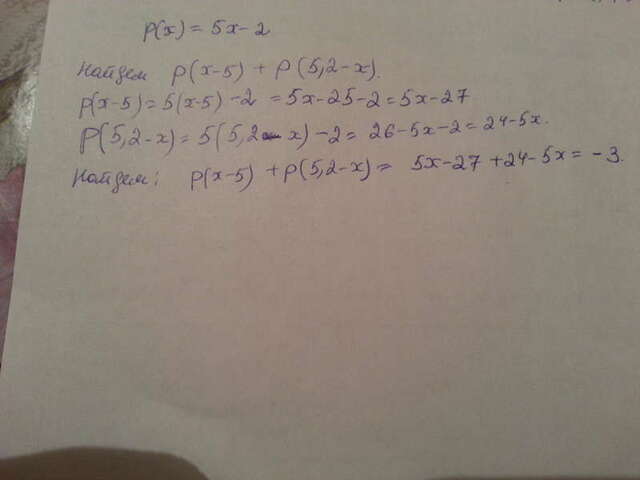 p(x) = 5x-2
Найдем p(x-5) + p(5,2-x).
p(x-5) = 5(x-5) -2 = 5x-25-2 = 5x-27
p(5,2-x) = 5(5,2-x) -2 = 26-5x-2 = 24-5x.
Найдем: p(x-5) + p(5,2-x) = 5x-27 +24-5x = -3.